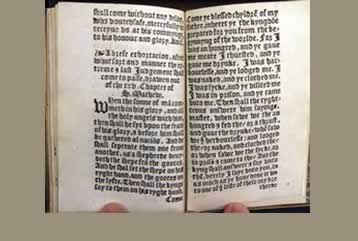 shall come without any delay,
vs, mercyfully to
receyue vs at his commyng,
to his honour and glory. Amen.
A briefe exhortacion, after
what sort and manner the ex-
treme & last Judgement shall
come to passe, drawen out
of the xxv. Chapter of
S. Mathewe.
When the sonne of man com-
meth in his glory, and all
the holy angels with him,
then shall he syt vppon the seate
of his glory, & before him shall
be gathered al nacions. And
shall seperate them one from
another, as a shepherde deuy-
deth the shepe fro the gootes.
And shall set the shepe on his
ryght hand, and the gootes on
the lyfte. Then shall the kynge
say to them on his ryght hand,
Come
Come ye blessed chyldrē of my
father, inheret ye the kyngdōe
prepared for you from the be-
gynnyng of the worlde. For I
was an hungred, and ye gaue
me meate. I thursted, and ye
gaue me drynke. I was har-
bourlesse, and ye lodged me. I
was naked, and ye clothed me.
I was sycke, and ye visited me
I was in pryson, and ye came
vnto me. Then shall the ryght-
teous answere him saying,
master, when sawe we the an
hungred & fed the? or a thurst,
& gaue the drynke? whē saw
we ye herbourlesse: and lodged
the? or naked, and clothed the?
or when sawe we the sycke,
& came to the? And the
kyng shall answere
the, verely I say vnto you, in
as much as ye haue done it
to one of ye leste of these my bre
therne